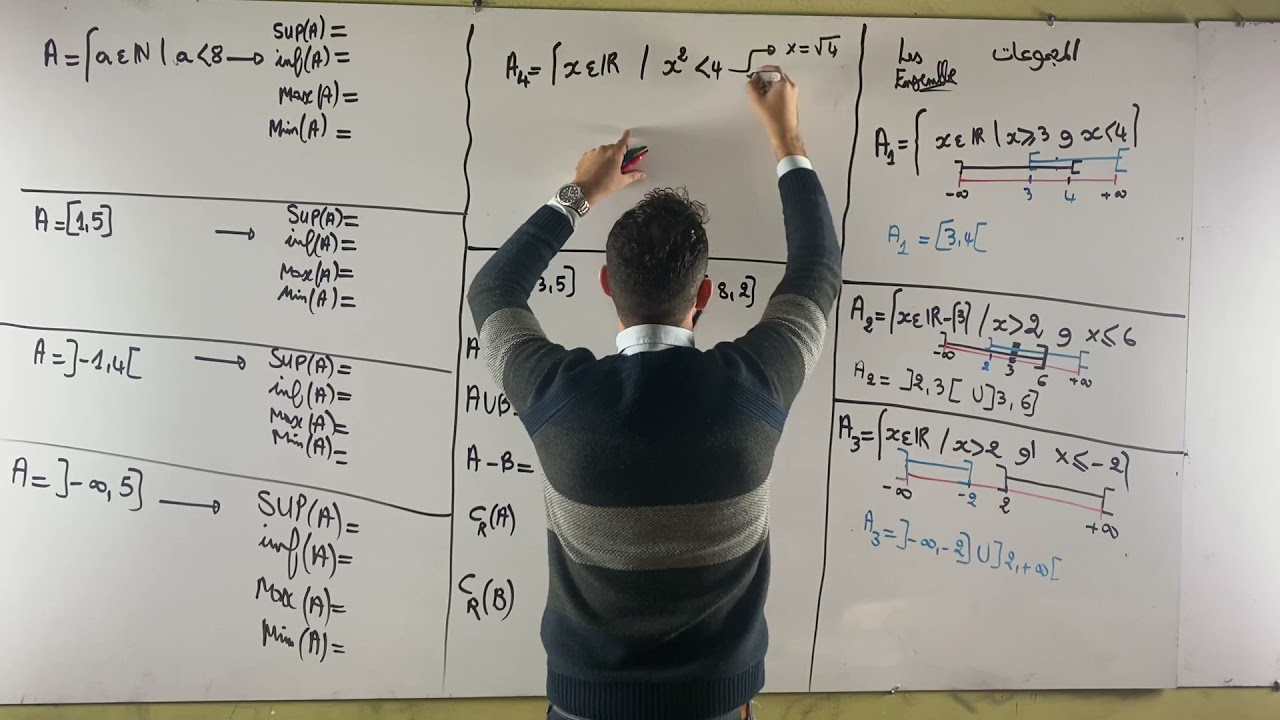 A = {a ∈ ℕ | a < 8 →
SUP(A) =
inf(A) =
Max(A) =
Min(A) =
A = [1,5] →
SUP(A) =
inf(A) =
Max(A) =
Min(A) =
A = ]-1,4[ →
SUP(A) =
inf(A) =
Max(A) =
Min(A) =
A = ]-∞,5] →
SUP(A) =
inf(A) =
Max(A) =
Min(A) =
A₄ = {x ∈ ℝ / x² < 4 → x = √4
3,5]
8,2]
A
A∪B=
A-B=
C_R(A)
C_R(B)
Les المجموعات
Ensemble
A₁ = {x ∈ ℝ | x ≥ 3 و x < 4}
-∞ 3 4 +∞
A₁ = [3,4[
A₂ = {x ∈ ℝ-{3} / x > 2 و x ≤ 6
-∞ 2 3 6 +∞
A₂ = ]2,3[ ∪ ]3,6]
A₃ = {x ∈ ℝ / x > 2 أو x ≤ -2}
-∞ -2 2 +∞
A₃ = ]-∞,-2] ∪ ]2,+∞[